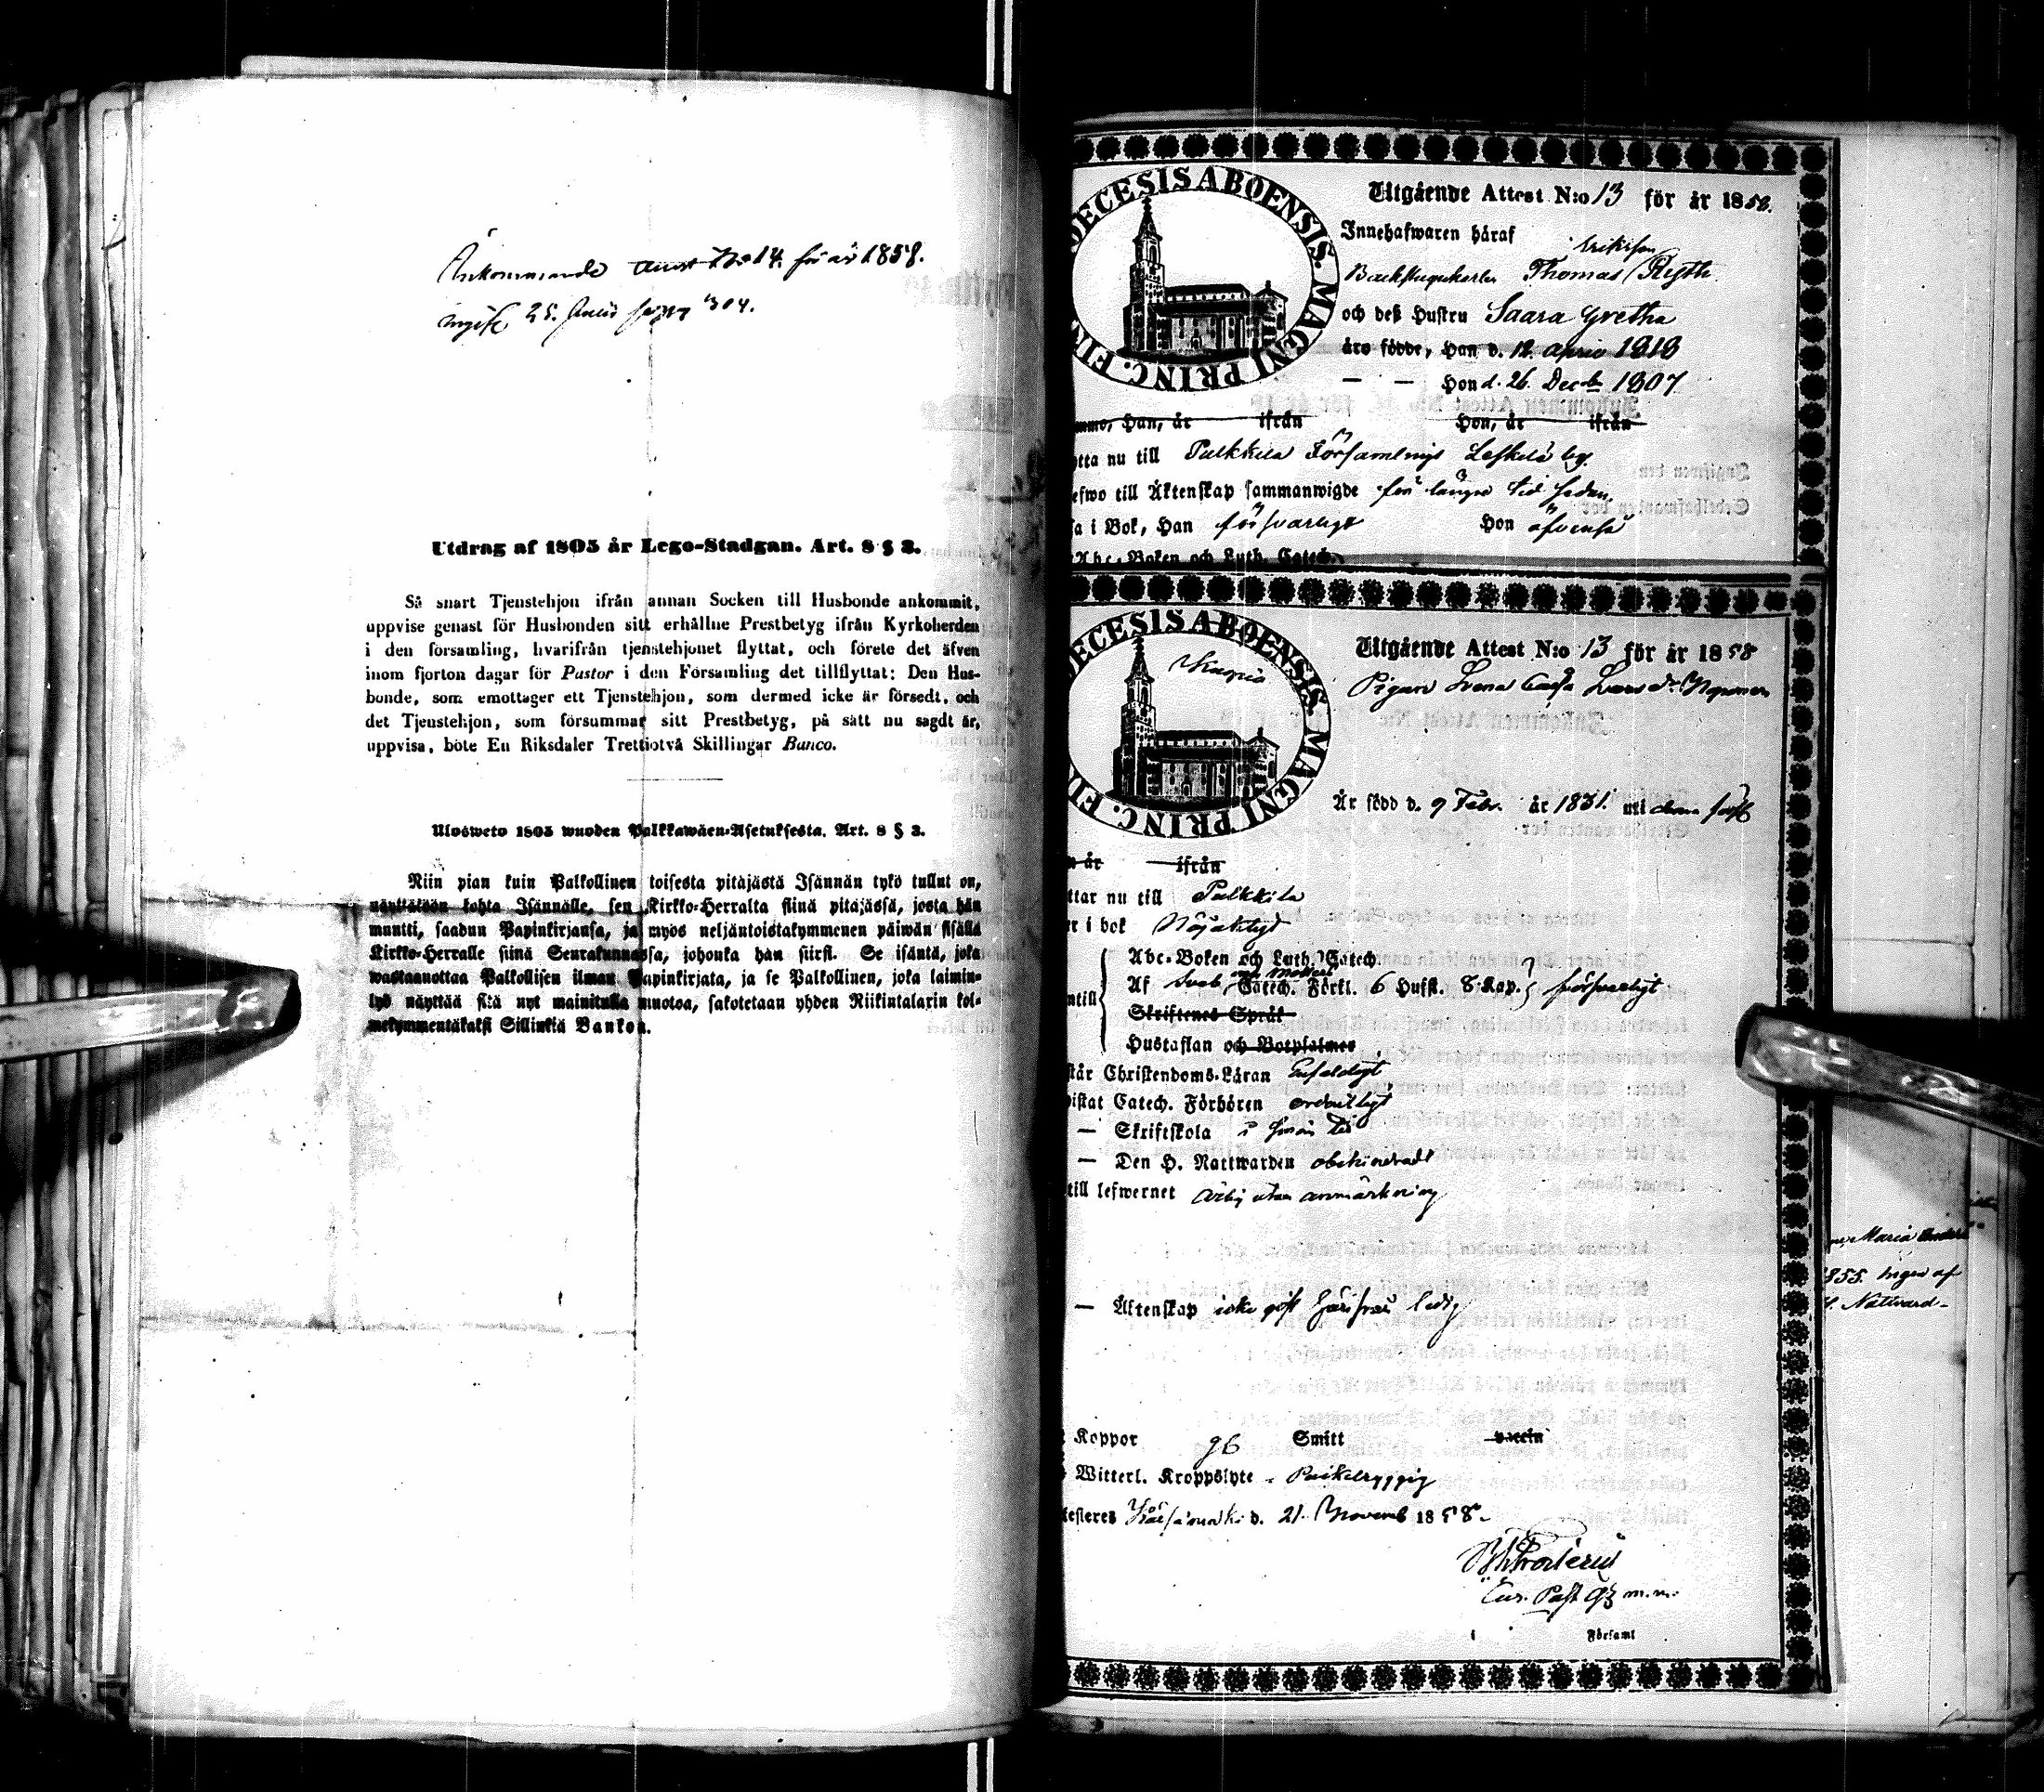 Ankommande attest No 14. för år 1858.
25. 304.
Utdrag af 1805 år Lego-Stadgan. Art. 8 § 3.
Så snart Tjenstehjon ifrån annan Socken till Husbonde ankommit,
uppvise genast för Husbonden sitt erhållne Prestbetyg ifrån Kyrkoherden
i den församling, hvarifrån tjenstehjonet flyttat, och förete det äfven
inom fjorton dagar för Pastor i den Församling det tillflyttat: Den Hus-
bonde, som emottager ett Tjenstehjon, som dermed icke är försedt, och
det Tjenstehjon, som försummar sitt Prestbetyg, på sätt nu sagdt är,
uppvisa, böte En Riksdaler Trettiotvå Skillingar Banco.
Ulosweto 1805 wuoden Palkkawäen-Asetuksesta. Art. 8 § 3.
Niin pian kuin Palkollinen toisesta pitäjästä Isännän tykö tullut on,
näyttäköön kohta Isännälle, sen Kirkko-Herralta siinä pitäjässä, josta hän
muutti, saadun Papinkirjansa, ja myös neljäntoistakymmenen päiwän sisällä
Kirkko-Herralle siinä Seurakunnassa, johonka hän siirsi. Se isäntä, joka
wastaanottaa Palkollisen ilman Papinkirjata, ja se Palkollinen, joka laimin-
lyö näyttää sitä nyt mainitulla muotoa, sakotetaan yhden Riikintalarin kol-
mekymmentäkaksi Sillinkiä Bankon.
DECESIS ABOENSIS. MAGNI PRINC. FIN
Utgående Attest N:o 13 för år 1858.
Innehafwaren häraf
Eriksson
Thomas
och deß Hustru Saara Gretha
äro födde, Han d. 12. April 1818
— — Hon d. 26. Decbr 1807
Han, år ifrån Hon, år ifrån
tta nu till Pulkkila Församlings Leskelä by.
efwo till Äktenskap sammanwigde för längre tid sedan.
sa i Bok, Han försvarligt Hon äfvenså
Abc-Boken och Luth. Catech.
DECESIS ABOENSIS. MAGNI PRINC. FIN
Utgående Attest N:o 13 för år 1858
Pigan Lovisa Cajsa Larsdr
Är född d. 9 Febr. år 1831.
n år ifrån
ttar nu till Pulkkila
r i bok Nöjaktigt
Abc-Boken och Luth. Catech.
Af Sveb. Catech. Förkl. 6 Hufst. 8 Kap. försvarligt
ntill
Skriftenes Språk
Hustaflan och Botpsalmer
står Christendoms-Läran Enfaldigt
istat Catech. Förhören ordentligt
— Skriftskola i sin tid
— Den H. Nattwarden obehindradt
till lefwernet ärlig utan anmärkning
— Äktenskap icke gift härifrån ledig
Koppor gb Smitt vaccin
Witterl. Kroppslyte
testeres Kärsämäki d. 21. Novemb 1858.
m.m.
i Församl
Maria Anders
1855. Ingen af
H. Nattvard-